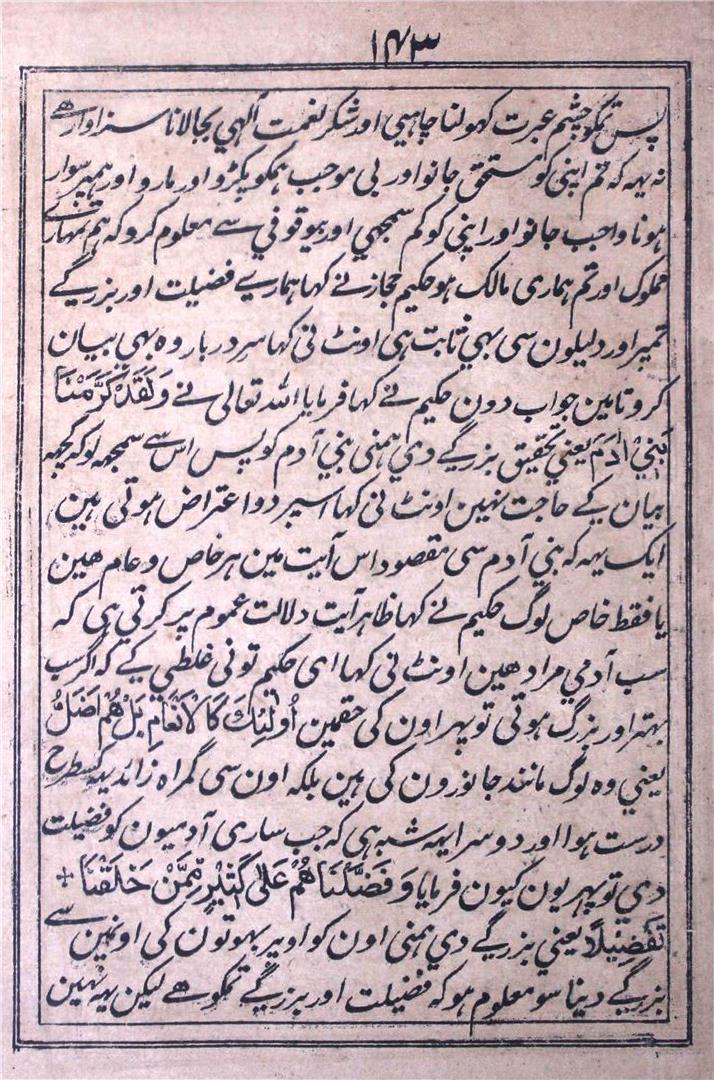 ۱۴۳
پس تمکو چشم عبرت کہولنا چاہیی اور شکر نعمت الٰہی بجالانا سزاوار ھے
نہ یہہ کہ تم اپنی کو مستحق جانو اور بی موجب ہمکو پکڑو اور مارو اور ہمپر سوار
ہونا واجب جانو اور اپنی کو کم سمجہی اور بیوقوفی سے معلوم کرو کہ ہم تمہاری
مملوک اور تم ہماری مالک ہو حکیم حجاز نے کہا ہماریے فضیلت اور بزرگے
تمپر اور دلیلون سی بہی ثابت ہی اونٹ نی کہا سر دربار وہ بہی بیان
کرو تا مین جواب دون حکیم نے کہا فرمایا اللہ تعالی نے وَلَقَدْ کَرَّمْنَا
بَنِیْ اٰدَمَ یعنی تحقیق بزرگے دی ہمنی بنی آدم کو پس اس سے سمجہہ لو کہ کچہہ
بیان کے حاجت نہین اونٹ نی کہا اسپر دو اعتراض ہوتی ہین
ایک یہہ کہ بنی آدم سی مقصود اس آیت مین ہر خاص و عام ھین
یا فقط خاص لوگ حکیم نے کہا ظاہر آیت دلالت عموم پر کرتی ہی کہ
سب آدمی مراد ھین اونٹ نی کہا ای حکیم تو نی غلطی کے کہ اگر سب
بہتر اور بزرگ ہوتی تو پہر اون کی حقمین اُولٰئِکَ کَالْاَنْعَامِ بَلْ هُمْ اَضَلُّ
یعنی وہ لوگ مانند جانورون کی ہین بلکہ اون سی گمراہ زائد یہہ کسطرح
درست ہوا اور دوسرا یہہ شبہ ہی کہ جب ساری آدمیون کو فضیلت
دی تو پہر یون کیون فرمایا وَفَضَّلْنَا هُمْ عَلٰی کَثِیْرٍ مِّمَّنْ خَلَقْنَا +
تَفْضِیْلًا یعنی بزرگے دی ہمنی اون کو اوپر بہوتون کی اونمین سے
بزرگے دینا سو معلوم ہو کہ فضیلت اور بزرگے تمکو ھے لیکن یہہ نہین